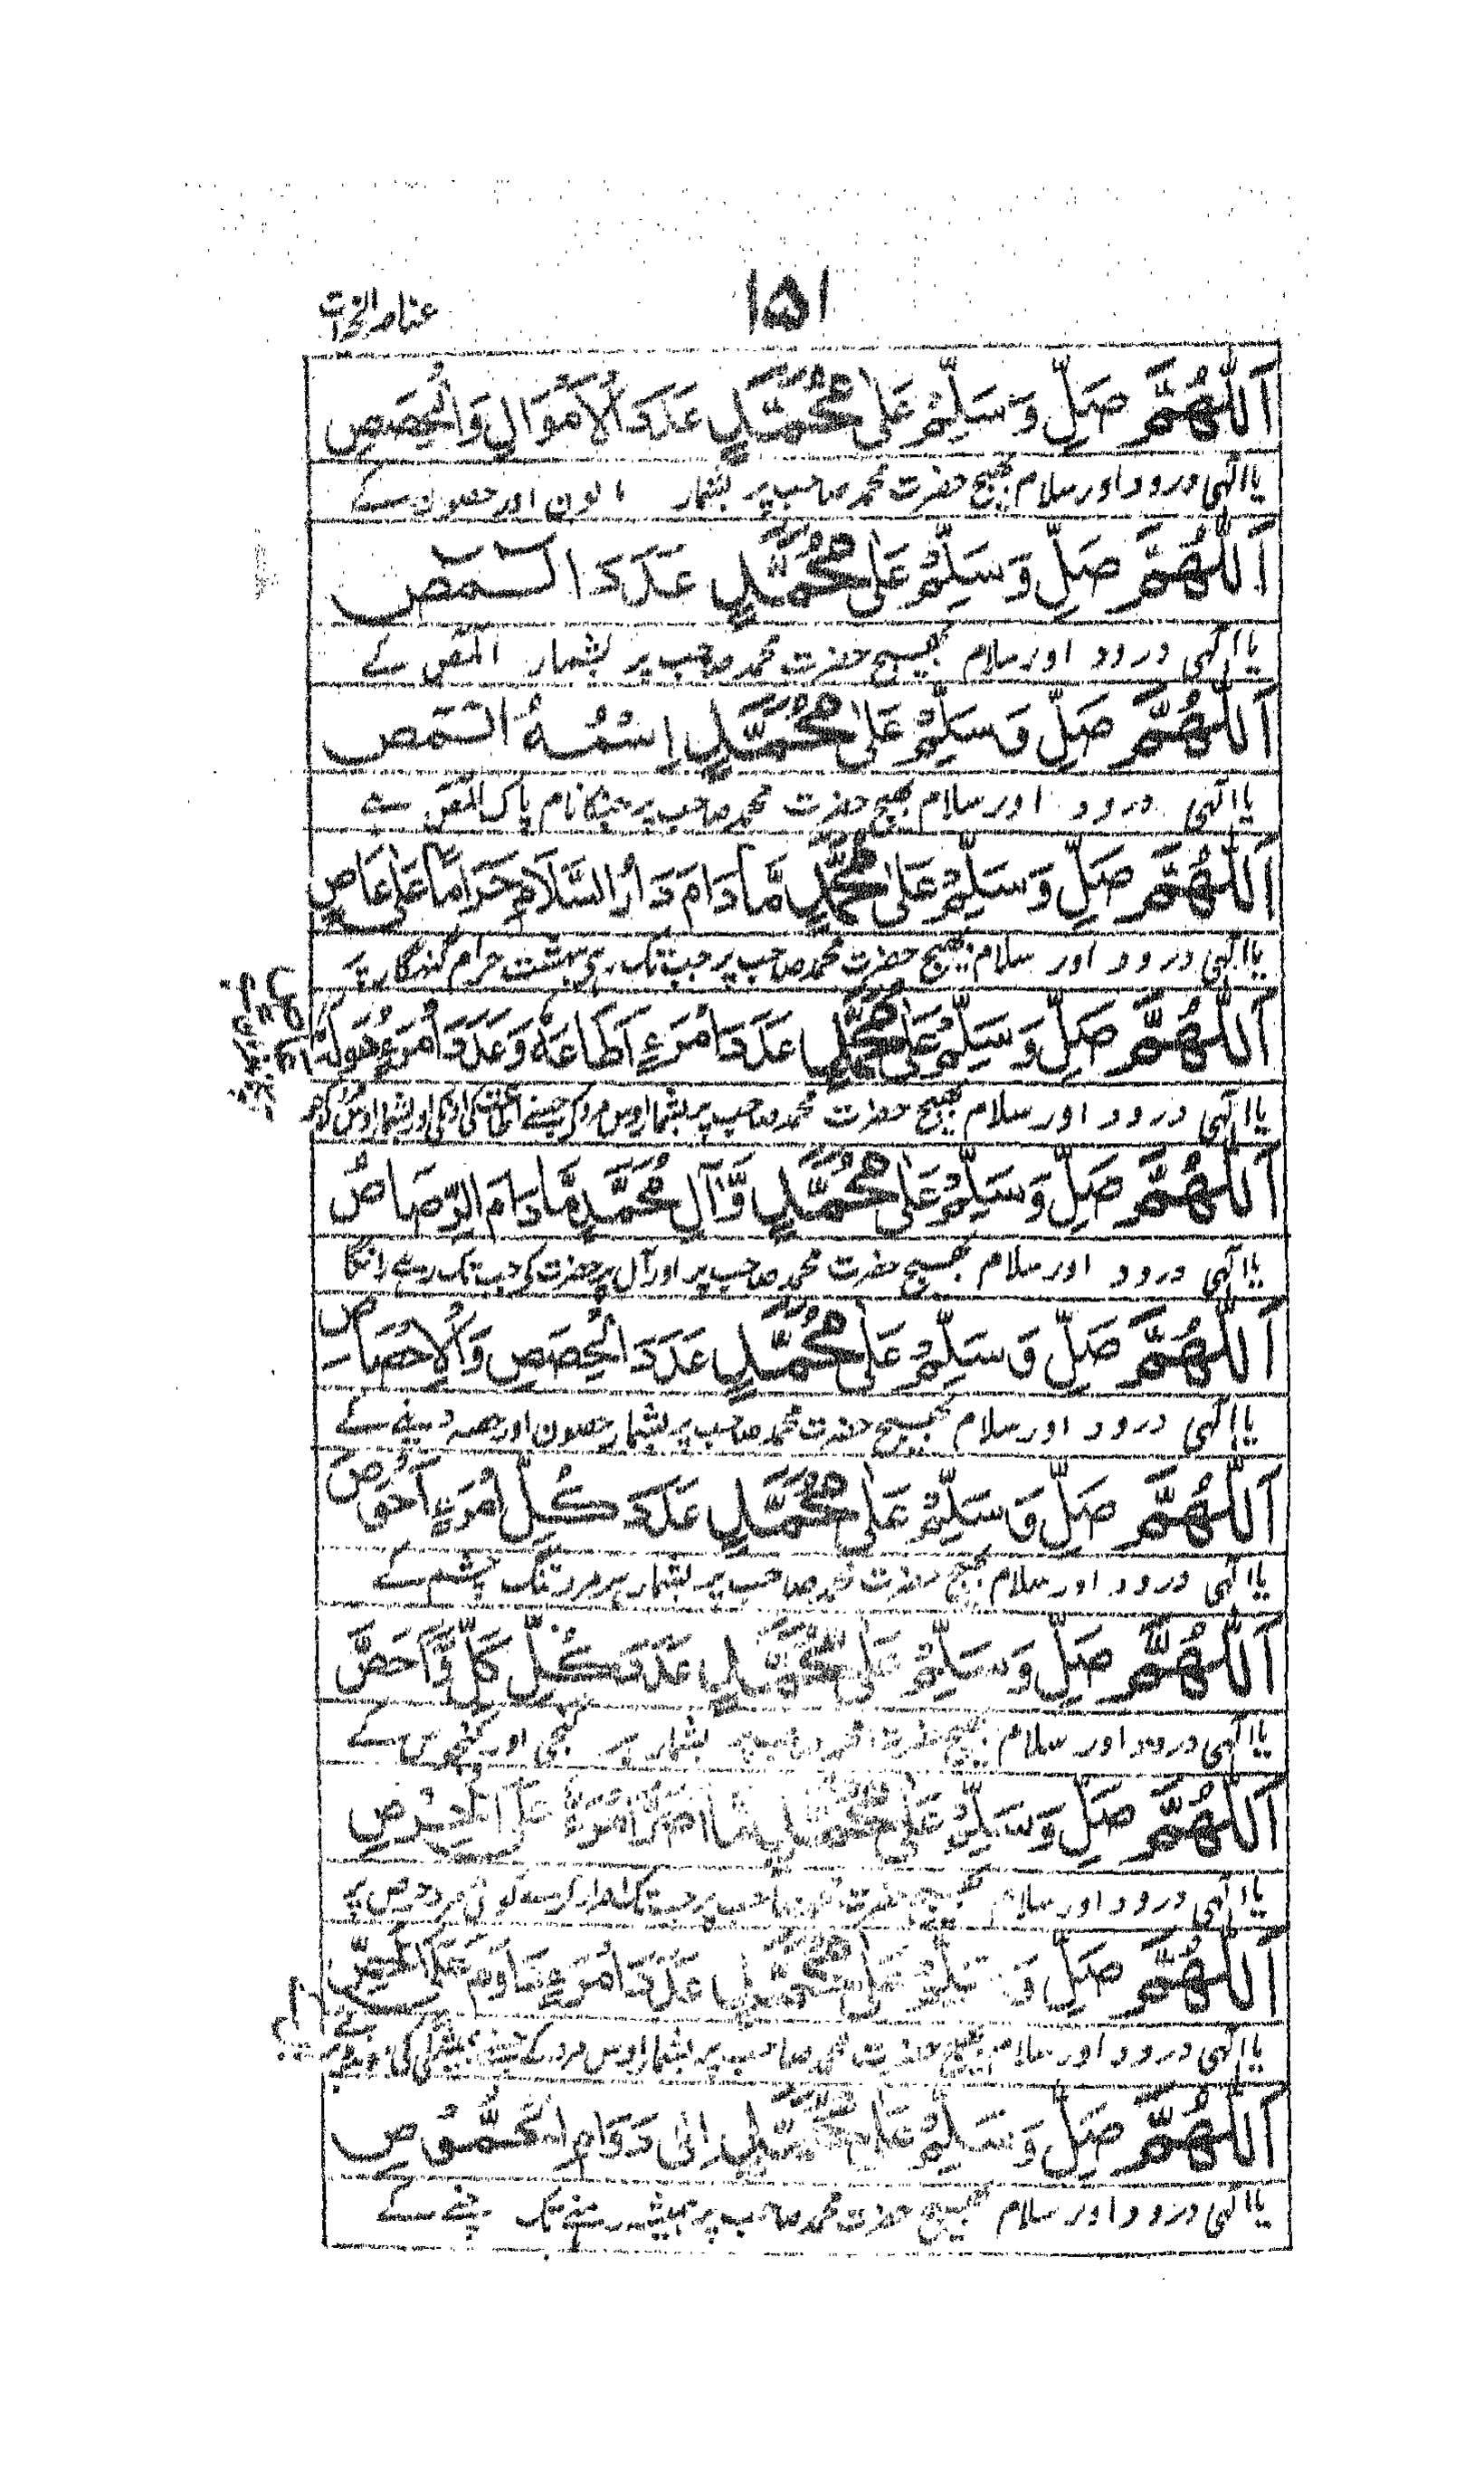 ۱۵۱
عناصر الخیرات
اَللّٰهُمَّ صَلِّ وَسَلِّمْ عَلٰی مُحَمَّدٍ عَدَدَ الْاَمْوَالِ وَالْحِصَصِ
یا الٰہی درود اور سلام بھیج حضرت محمد صاحب پر بشمار مالون اور حصون کے
اَللّٰهُمَّ صَلِّ وَسَلِّمْ عَلٰی مُحَمَّدٍ عَدَدَ الٓمّٓصٓ
یا الٰہی درود اور سلام بھیج حضرت محمد صاحب پر بشمار المص کے
اَللّٰهُمَّ صَلِّ وَسَلِّمْ عَلٰی مُحَمَّدٍ اِسْمُهُ الٓمّٓصٓ
یا الٰہی درود اور سلام بھیج حضرت محمد صاحب پر جنکا نام پاک المص ہے
اَللّٰهُمَّ صَلِّ وَسَلِّمْ عَلٰی مُحَمَّدٍ مَّا دَامَ دَارُ السَّلَامِ حَرَامًا عَلٰی عَاصٍ
یا الٰہی درود اور سلام بھیج حضرت محمد صاحب پر جب تک رہے بہشت حرام گنہگار پر
اَللّٰهُمَّ صَلِّ وَسَلِّمْ عَلٰی مُحَمَّدٍ عَدَدَ امْرَءٍ اَطَاعَهٗ وَعَدَدَ امْرَءٍ هُوَ لَهٗ
یا الٰہی درود اور سلام بھیج حضرت محمد صاحب پر بشمار اوس مرد کے جسنے اطاعت کی اونکی اور بشمار اوس مرد کے جو
اَللّٰهُمَّ صَلِّ وَسَلِّمْ عَلٰی مُحَمَّدٍ وَّاٰلِ مُحَمَّدٍ مَّا دَامَ الرَّصَاصُ
یا الٰہی درود اور سلام بھیج حضرت محمد صاحب پر اور آل پر حضرت کی جب تک رہے رانگا
اَللّٰهُمَّ صَلِّ وَسَلِّمْ عَلٰی مُحَمَّدٍ عَدَدَ الْحِصَصِ وَالْاِحْصَاصِ
یا الٰہی درود اور سلام بھیج حضرت محمد صاحب پر بشمار حصون اور حصہ دینے کے
اَللّٰهُمَّ صَلِّ وَسَلِّمْ عَلٰی مُحَمَّدٍ عَدَدَ كُلِّ امْرَءٍ اَحْوَصَ
یا الٰہی درود اور سلام بھیج حضرت محمد صاحب پر بشمار ہر مرد تنگ چشم کے
اَللّٰهُمَّ صَلِّ وَسَلِّمْ عَلٰی مُحَمَّدٍ عَدَدَ كُلِّ كَلٍّ وَّاَحَصَّ
یا الٰہی درود اور سلام بھیج حضرت محمد صاحب پر بشمار ہر اور کے
اَللّٰهُمَّ صَلِّ وَسَلِّمْ عَلٰی مُحَمَّدٍ مَّا اَصَرَّ امْرَءٌ عَلَی الْحِرْصِ
یا الٰہی درود اور سلام بھیج حضرت محمد صاحب پر جب تک اصرار کرے کوئی مرد حرص پر
اَللّٰهُمَّ صَلِّ وَسَلِّمْ عَلٰی مُحَمَّدٍ عَدَدَ امْرَءٍ دَاوَمَ عَلَی
یا الٰہی درود اور سلام بھیج حضرت محمد صاحب پر بشمار اوس مرد کے جسنے ہمیشگی کی
اَللّٰهُمَّ صَلِّ وَسَلِّمْ عَلٰی مُحَمَّدٍ اِلٰی دَوَامِ الْحُمُّوْصِ
یا الٰہی درود اور سلام بھیج حضرت محمد صاحب پر ہمیشہ رہنے تک چنے کے